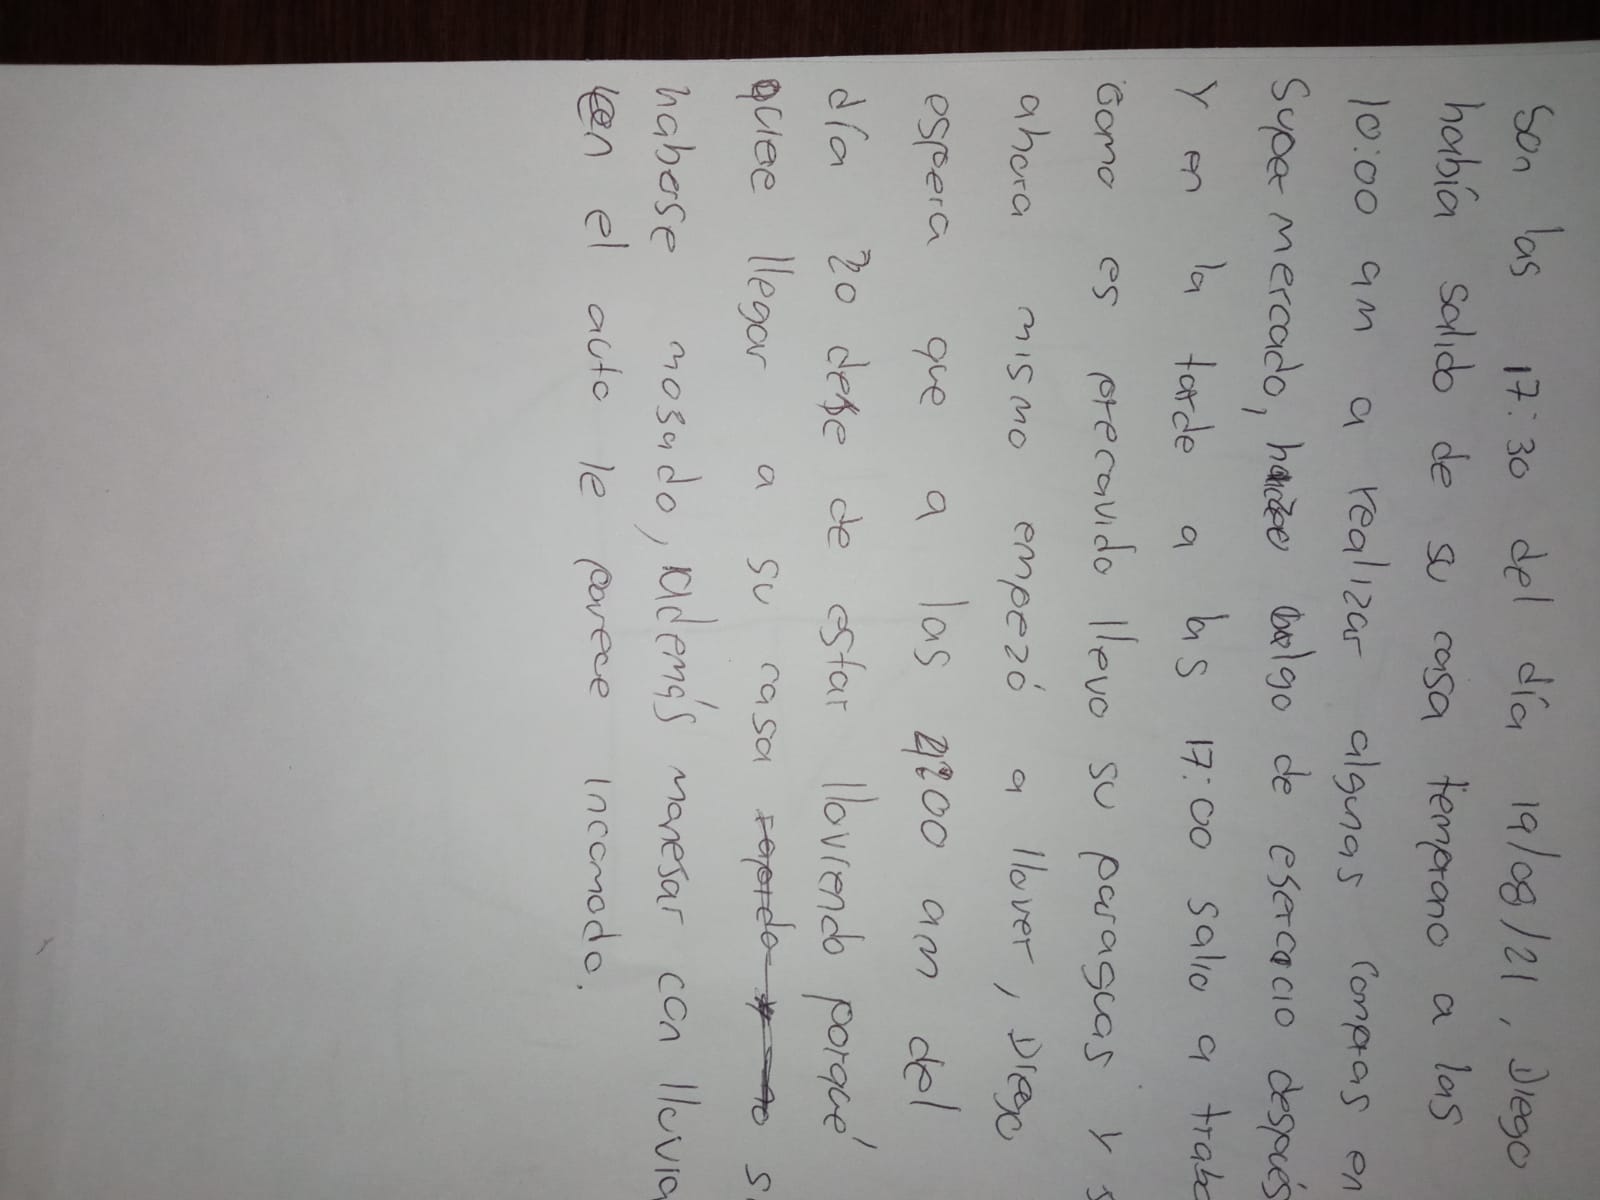 Son las 17:30 del día 19/08/21, Diego
había salido de su casa temprano a las
10:00 am a realizar algunas compras en
Super mercado, algo de esercicio después
Y en la tarde a las 17:00 salio a trab
Como es precavido llevo su paraguas y s
ahora mismo empezó a llover, Diego
espera que a las 00 am del
día 20 deje de estar lloviendo porqué
quiere llegar a su casa s
haberse mosado, además manesar con lluvia
en el auto le parece incomodo.